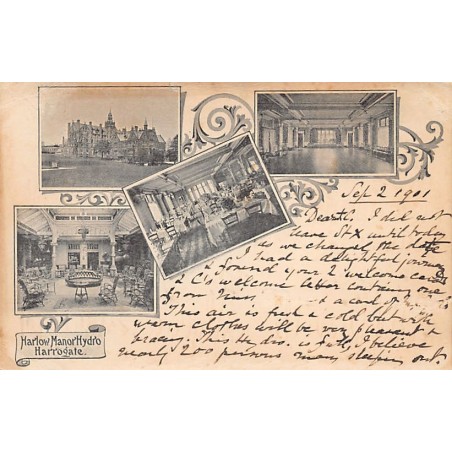 Sep 2 1901
I did not
have St X until today
as we changed the date
I had a delightful journey
I found your 2 welcome cards
2 C's welcome letter containing one
from a card of
This air is fresh & cold but with
warm clothes will be very pleasant &
bracing. This Hydro. is full, I believe
nearly 200 persons many sleeping out.
Harlow Manor Hydro
Harrogate.